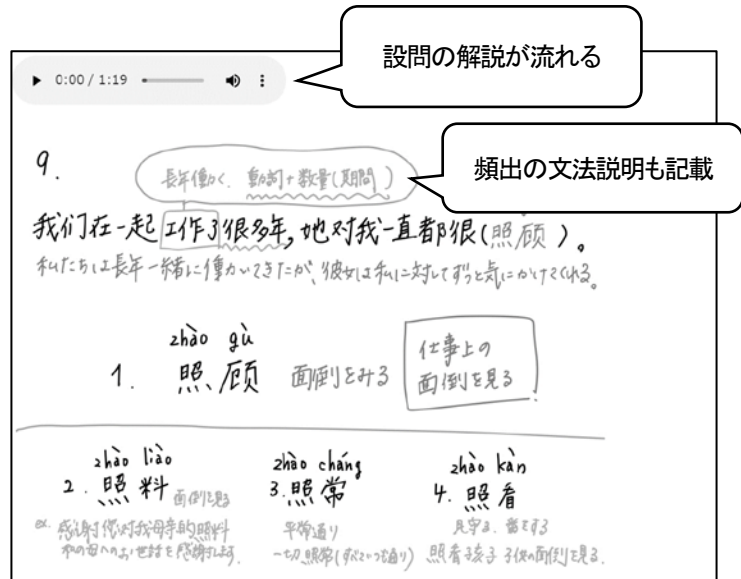 設問の解説が流れる
0:00 / 1:19
頻出の文法説明も記載
9.
長年働く、動詞+数量(期間)
我们在一起工作了很多年,她对我一直都很(照顾)。
私たちは長年一緒に働いてきたが、彼女は私に対してずっと気にかけてくれる。
zhào gù
1. 照顾 面倒をみる
仕事上の
面倒を見る
zhào liào
2. 照料 面倒を見る
ex. 感谢您对我母亲的照料
私の母へのお世話を感謝します。
zhào cháng
3. 照常
平常通り
一切照常(すべていつも通り)
zhào kàn
4. 照看
見守る、番をする
照看孩子 子供の面倒を見る.